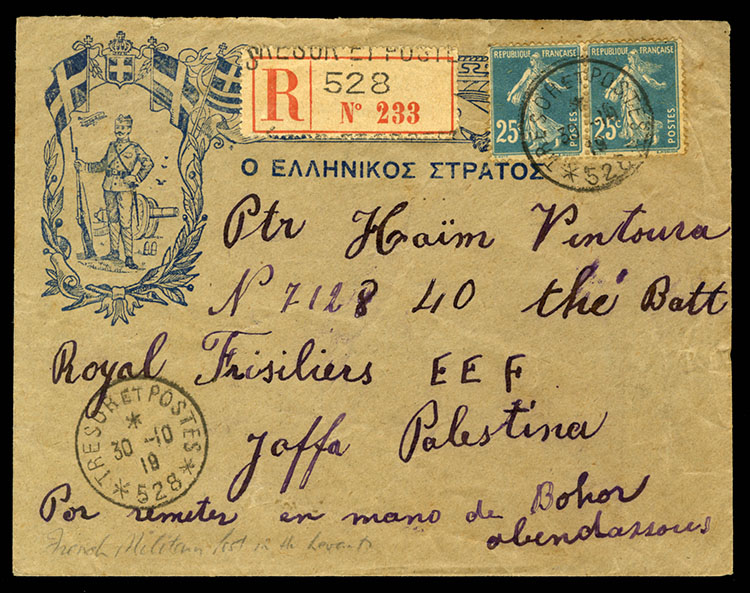 TRESOR ET POSTE
R 528
Nº 233
REPUBLIQUE FRANÇAISE
25c POSTES
REPUBLIQUE FRANÇAISE
25c POSTES
TRESOR ET POSTES
19
*528*
Ο ΕΛΛΗΝΙΚΟΣ ΣΤΡΑΤΟΣ
Ptr Haïm Ventoura
N 7128 40 the Batt
Royal Frisiliers EEF
Jaffa Palestina
TRESOR ET POSTES
*
30 -10
19
*528*
Por remeter en mano de Bohor
abendassoues
French Military Post in the Levant